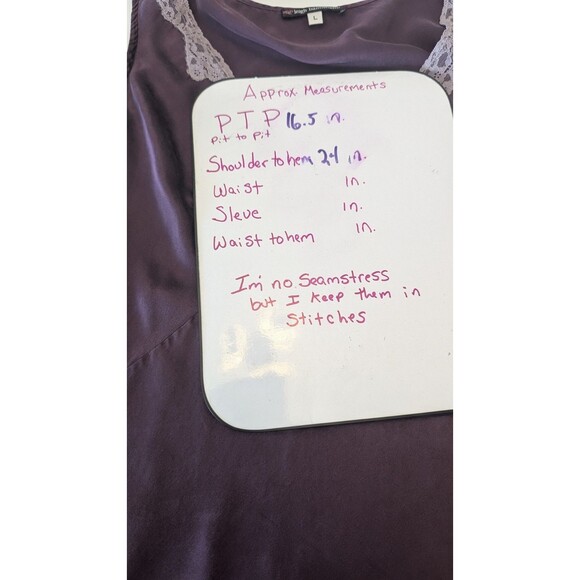 L
Approx. Measurements
PTP 16.5 in.
Pit to Pit
Shoulder to hem 24 in.
Waist in.
Sleve in.
Waist to hem in.
I'm no Seamstress
but I keep them in
Stitches